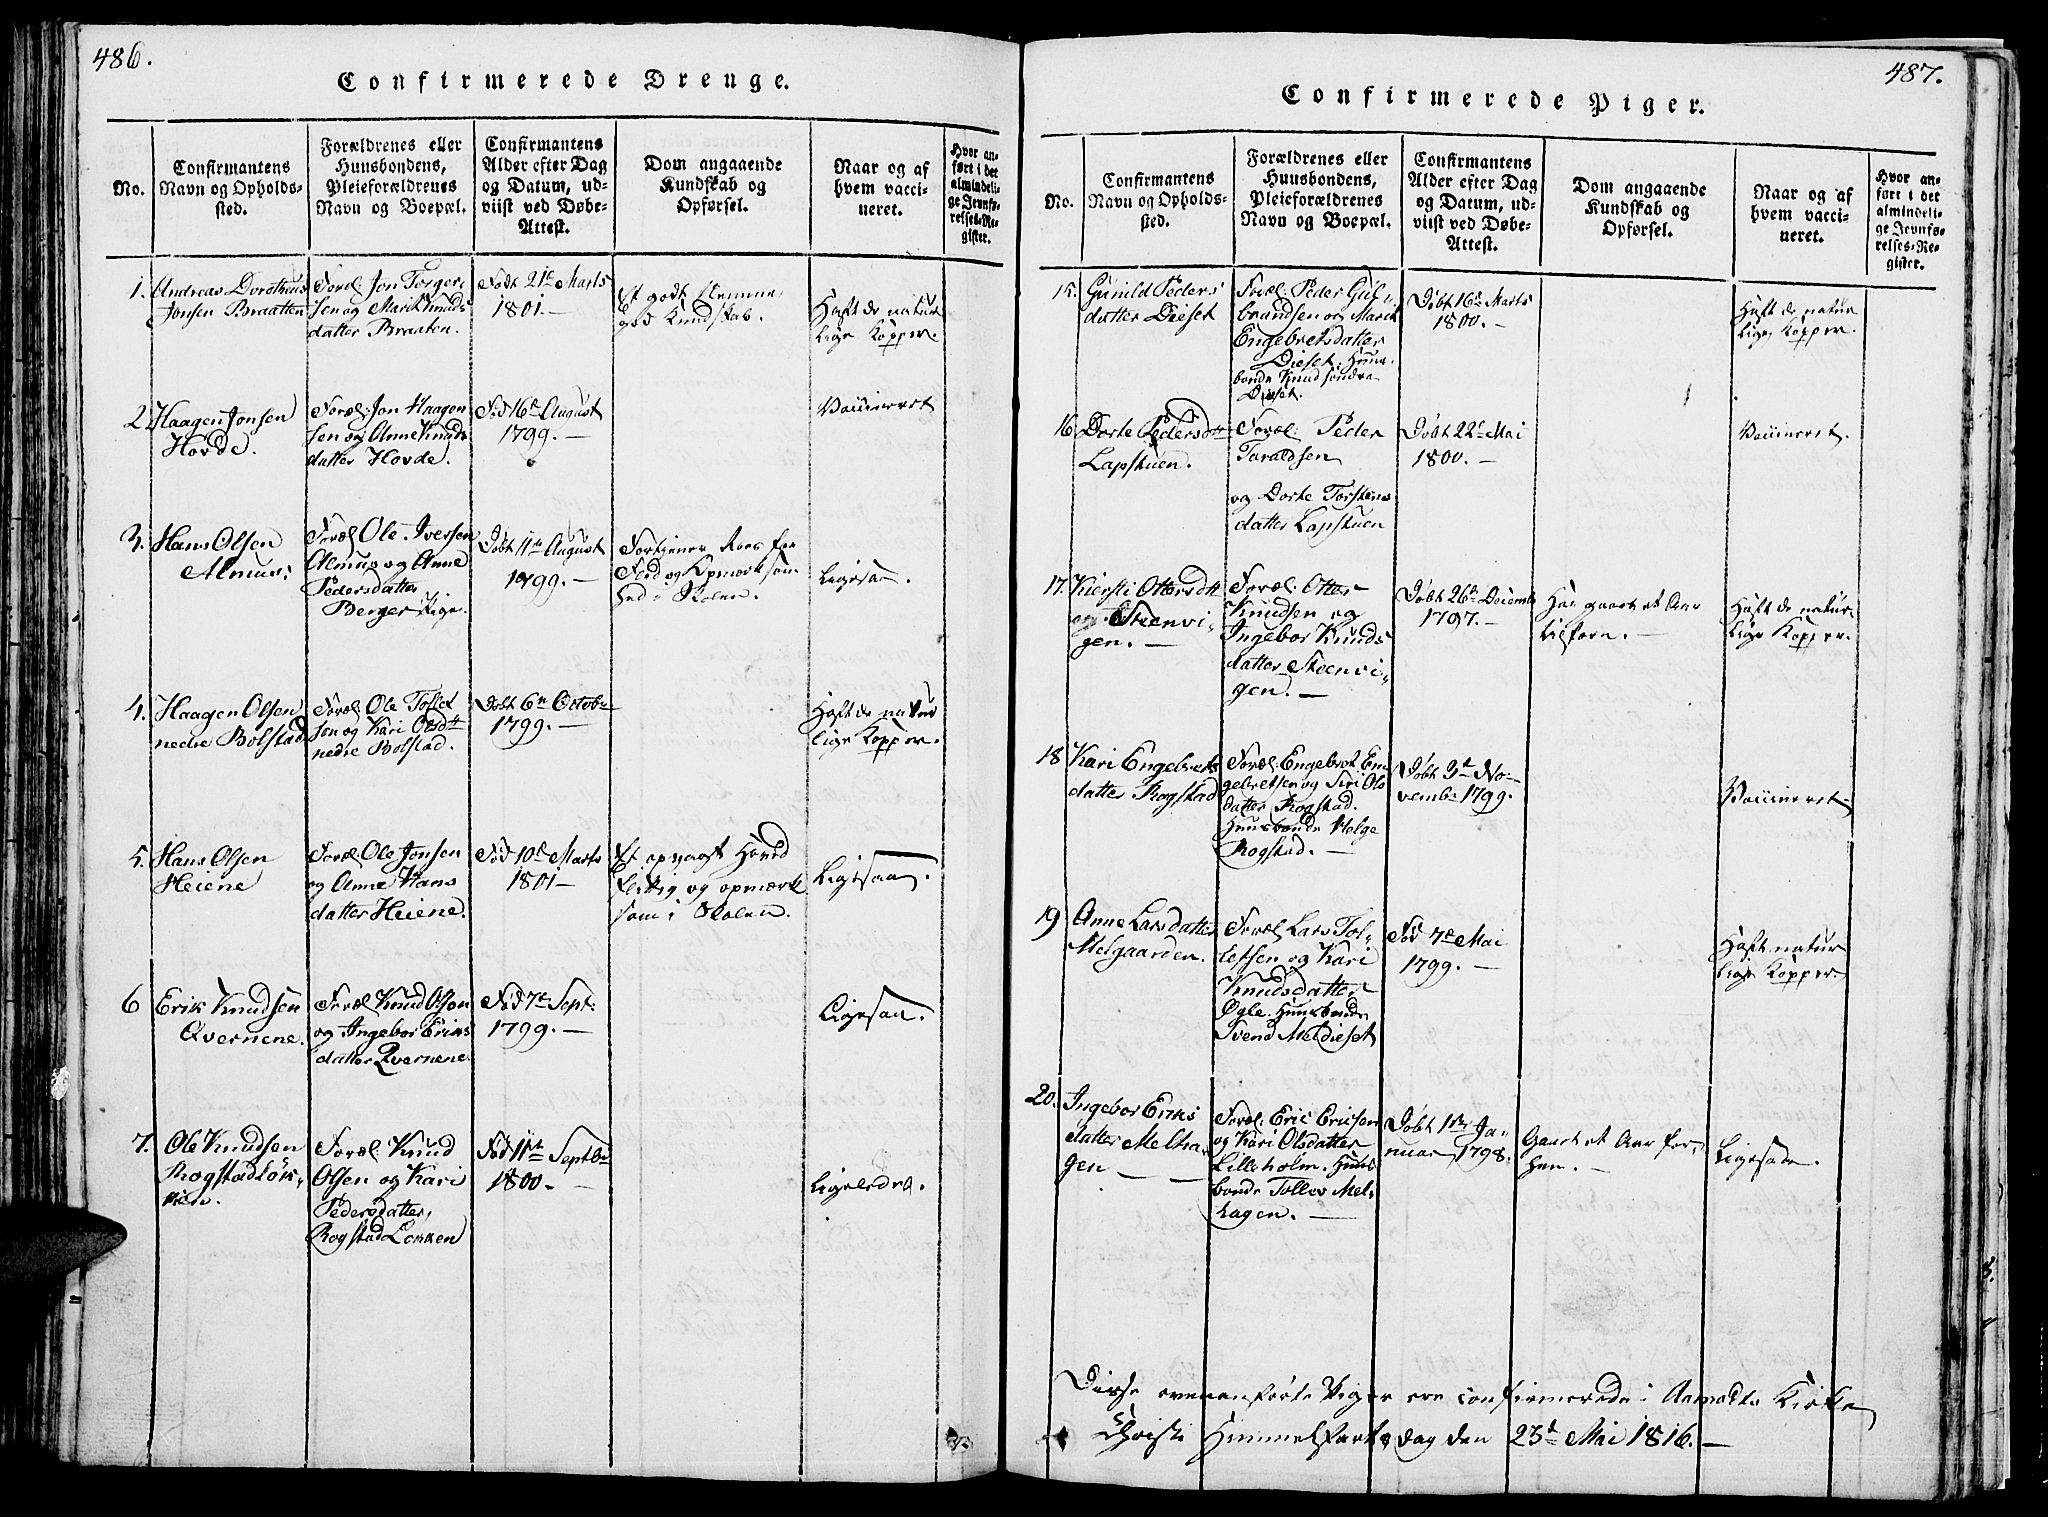 486.
Confirmerede Drenge.
No.
Confirmantens
Navn og Opholds-
sted.
Forældrenes eller
Huusbondens,
Pleieforældrenes
Navn og Boepæl.
Confirmantens
Alder efter Dag
og Datum, ud-
viist ved Døbe-
Attest.
Dom angaaende
Kundskab og
Opførsel.
Naar og af
hvem vacci-
neret.
Hvor an-
ført i det
almindeli-
ge Jevnfø-
relses-Re-
gister.
1.
Andreas Dorotheus
Jonsen Braatten
Foræl: Jon Torger-
sen og Marit Knuds
datter Braaten.
Født 21de Marts
1801.—
Et godt Nemme,
god Kundskab.
Haft de natur
lige Kopper.
2
Haagen Jonsen
Hovde.
Foræl: Jon Haagen
sen og Anne Knuds
datter Hovde.
Fød 16de August
1799.—
Vaccineret
3.
Hans Olsen
Almus.
Foræl Ole Iversen
Almus og Anne
Pedersdatter
Berger
Døbt 11te August
1799.—
Fortjener Roes for
Flid og Opmærksom
hed i Skolen.
Ligesaa.
4.
Haagen Olsen
nedre Bolstad
Foræl Ole Tollef
sen og Kari Olsdtr
nedre Bolstad.
Døbt 6te Octobr
1799.—
Haft de natur
lige Kopper.
5.
Hans Olsen
Heiene
Foræl Ole Jonsen
og Anne Hans
datter Heiene.
Fød 10de Marts
1801—
Et opvagt Hoved
flittig og opmærk
som i Skolen.
Ligesaa.
6
Erik Knudsen
Qvernene.
Foræl Knud Olsen
og Ingebor Eriks
datter Qvernene
Fød 7de Sept:
1799.—
Ligesaa.
7.
Ole Knudsen
Rogstadløk-
ken.
Foræl: Knud
Olsen og Kari
Pedersdatter,
Rogstad Løkken
Fød 11te Septbr
1800.—
Ligeledes.
487.
Confirmerede Piger.
No.
Confirmantens
Navn og Opholds-
sted.
Forældrenes eller
Huusbondens,
Pleieforældrenes
Navn og Boepæl.
Confirmantens
Alder efter Dag
og Datum, ud-
viist ved Døbe-
Attest.
Dom angaaende
Kundskab og
Opførsel.
Naar og af
hvem vacci-
neret.
Hvor an-
ført i det
almindeli-
ge Jevnfø-
relses-Re-
gister.
15.
Gunild Peders
datter Dieset
Foræl: Peder Gul-
brandsen og Marit
Engebretsdatter
Dieset. Huus-
bonde Knud søndre
Dieset.
Døbt 16de Marts
1800.—
Haft de natur
lige Kopper.
16
Dorte Pedersdtr
Lapstuen.
Foræl: Peder
Taraldsen
og Dorte Torstens
datter Lapstuen
Døbt 22de Mai
1800.—
Vaccineret.
17.
Kiersti Ottersdtr
Steenvi-
gen.—
Foræl: Otter
Knudsen og
Ingebor Knuds
datter Steenvi-
gen.—
Døbt 26de Decembr
1797.—
Har gaaet et Aar
tilforn.—
Haft de natur-
lige Kopper.
18
Kari Engebrets
datter Rogstad
Foræl: Engebret En
gebretsen og Siri Ols
datter Rogstad.
Huusbonde Helge
Rogstad.—
Døbt 3de No-
vembr 1799.
Vaccineret
19
Anne Larsdatter
Melgaarden.
Foræl Lars Tol-
lefsen og Kari
Knudsdatter
Øgle. Huusbonde
Svend Meldieset
Fød 7de Mai
1799.—
Haft natur
lige Kopper.
20.
Ingebor Eriks
datter Melha-
gen—
Foræl: Eric Ericsen
og Kari Olsdatter
Lilleholm. Huus
bonde Tollev Mel-
hagen.—
Døbt 1ste Ja-
nuar 1798.
Gaaet et Aar for-
hen.—
Ligesaa.
Disse ovenanførte Piger ere confirmerede i Aamodts Kirke
Christi Himmelfarts dag den 23de Mai 1816.—